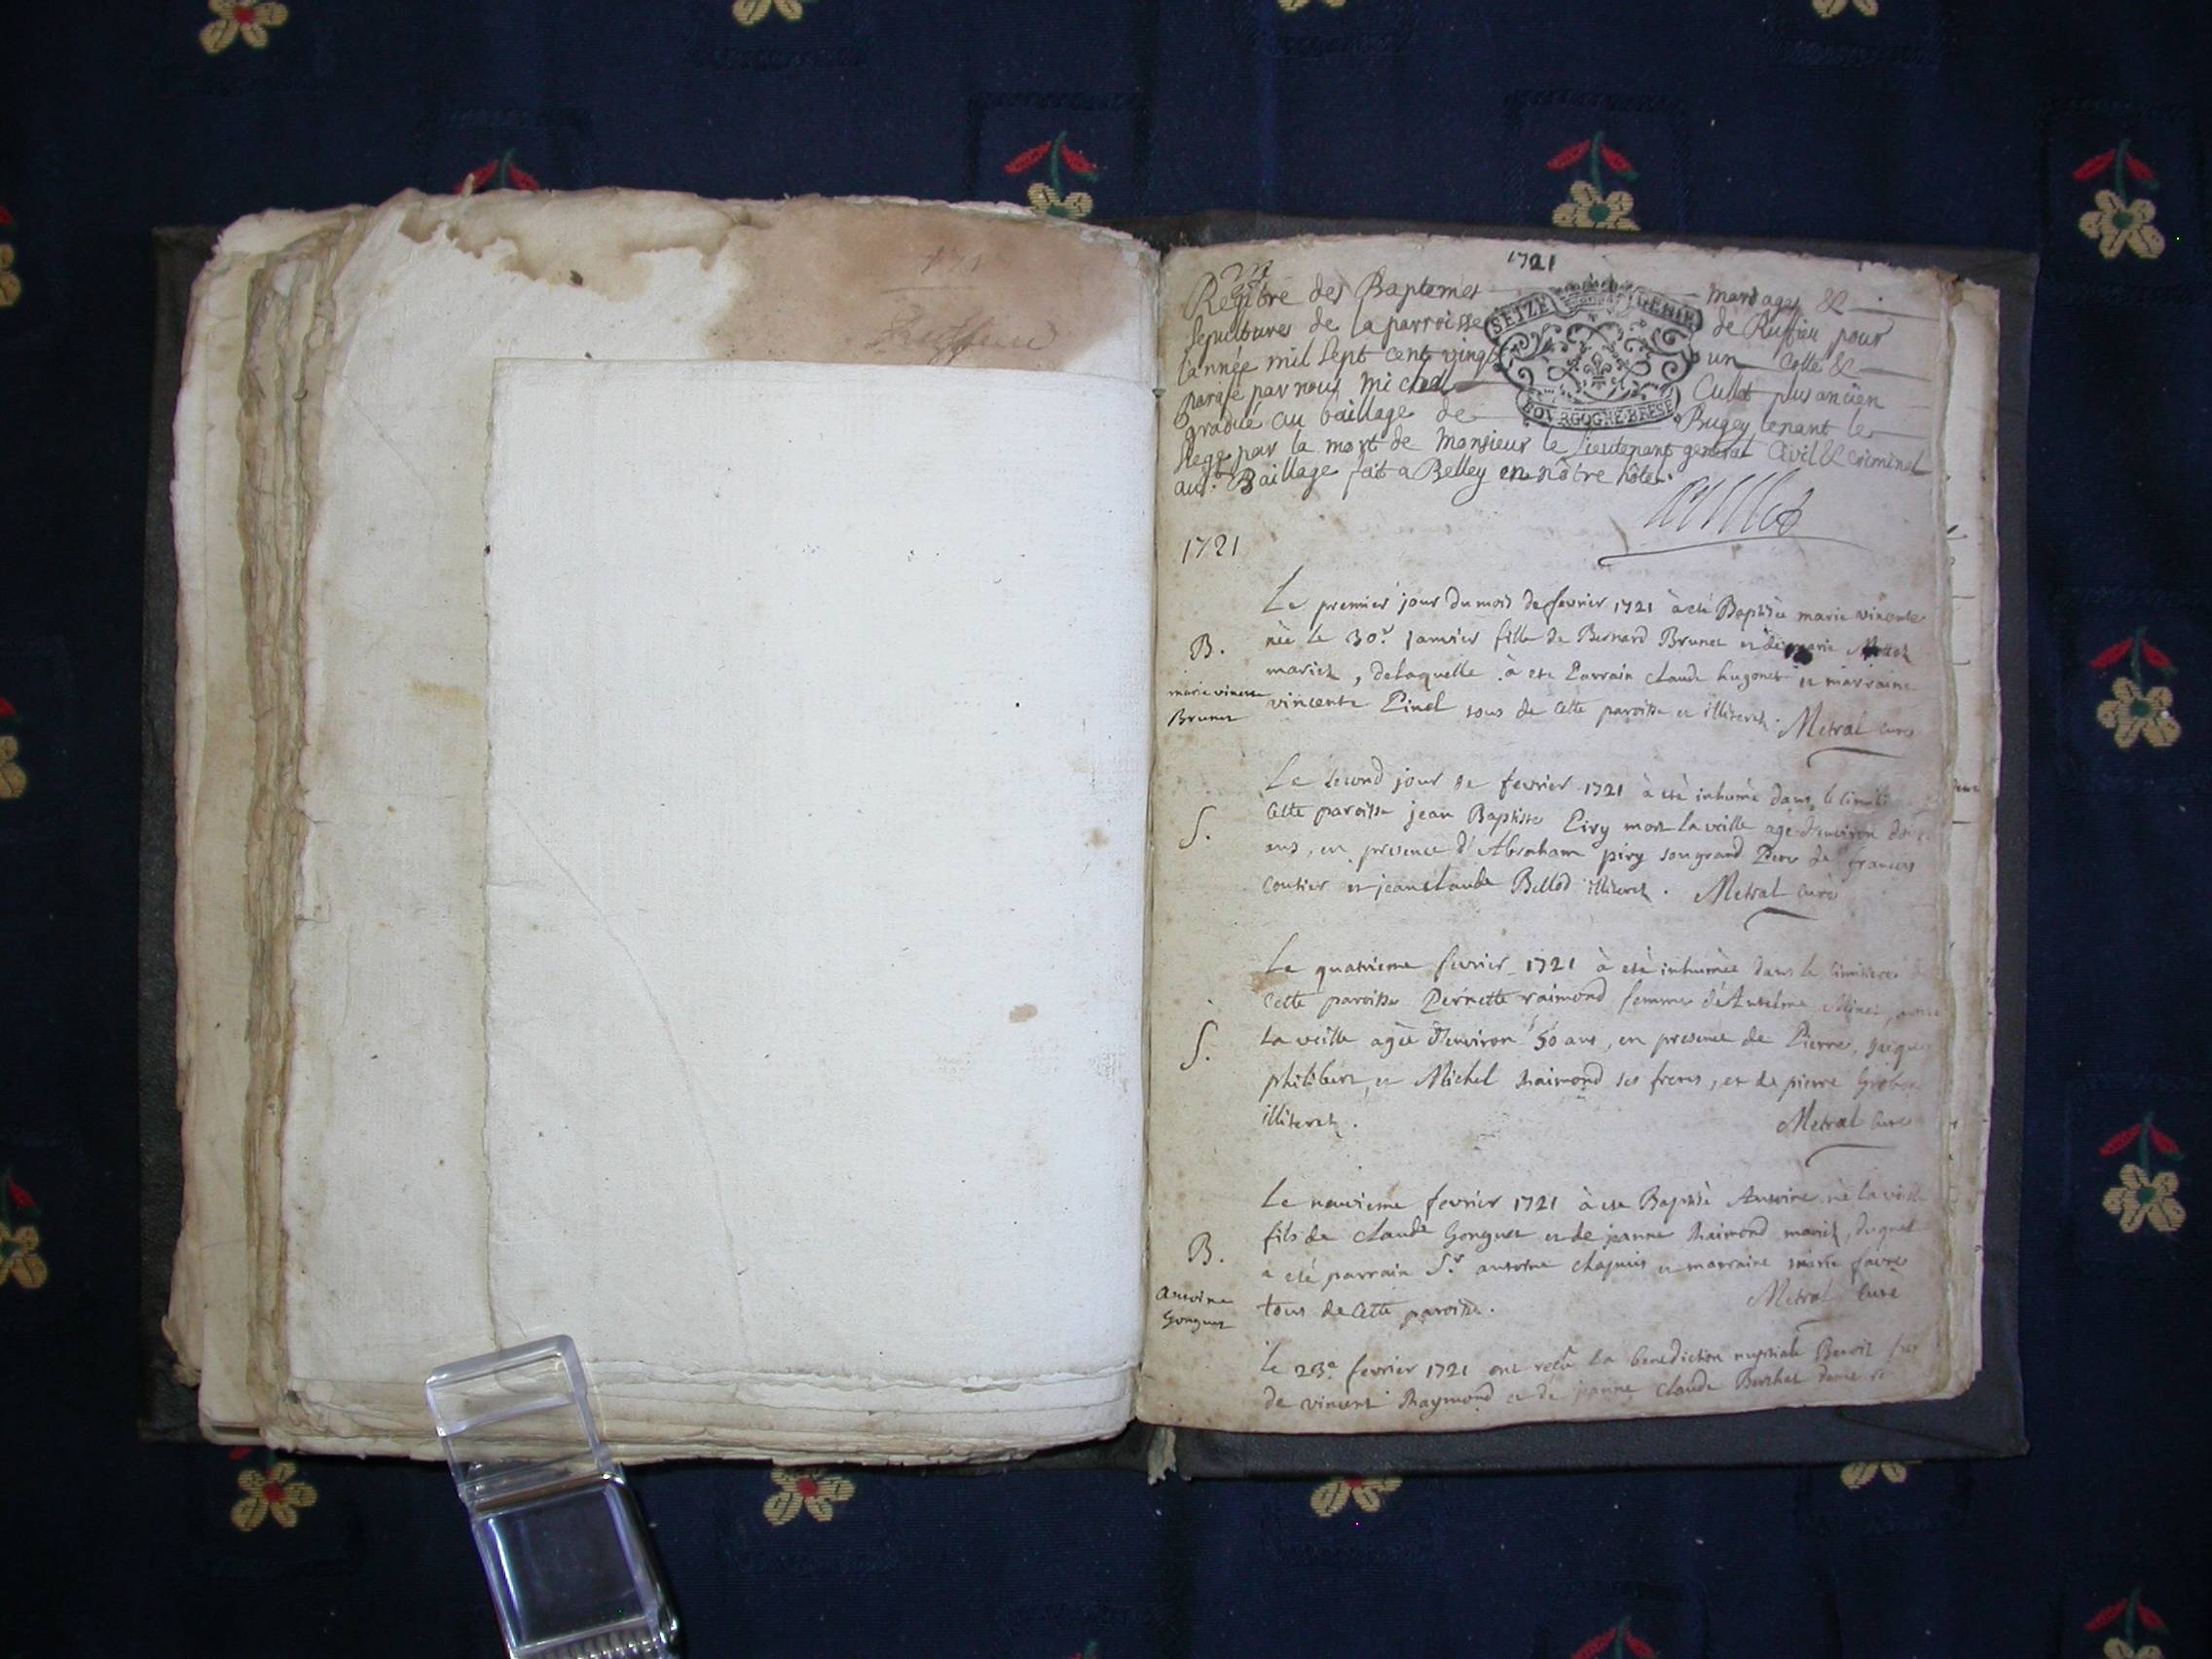 1721
Registre des Baptemes mariages &
sepultures de la parroisse de Ruffieu pour
l'année mil sept cent vingt un cotté &
parafé par nous Michel Cullet plus ancien
gradué au bailliage de Bugey tenant le
siege par la mort de Monsieur le Lieutenant general Civil & criminel
aud. Baillage fait a Belley en nôtre hôtel.
SEIZE
BOURGOGNE BRESSE
Cullet
1721
Le premier jour du mois de fevrier 1721 à eté Baptisée marie vincente
B.
née le 30e janvier fille de Bernard Brunet et de marie
mariez, de laquelle à ete Parrain claude hugonet et marraine
marie vincente
vincente Pinel tous de cette paroisse et illiterez. Metral curé
Brunet
Le second jour de fevrier 1721 à eté inhumé dans le
S.
cette paroisse jean Baptiste Piry mort la veille agé d'environ
ans, en presence d'Abraham piry son grand Pere de francois
coutier et jean claude Bellod illiterez. Metral curé
Le quatrieme fevrier 1721 à eté inhumée dans le cimitiere
cette paroisse Pernette raimond femme d'Antelme
S.
la veille agée d'environ 50 ans, en presence de Pierre, jacques
philibert, et Michel Raimond ses freres, et de pierre
illiterez. Metral curé
Le neuvieme fevrier 1721 à ete Baptisé Antoine né la veille
B.
fils de claude Gonguet et de jeanne Raimond mariez, duquel
a eté parrain Sr. antoine chapuis et marraine marie favre
Antoine
Gonguet
tous de cette paroisse. Metral Curé
Le 23e fevrier 1721 ont reçu la benediction nuptiale Benoit
de vincent Raymond et de jeanne claude Berthet